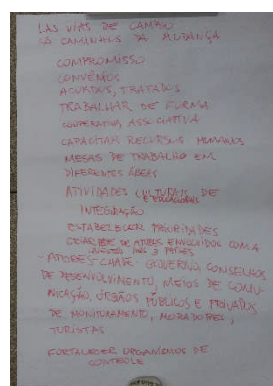 LAS VIAS DE CAMBIO
CAMINHOS DA MUDANÇA
COMPROMISSO
CONVÊNIOS
ACUERDOS, TRATADOS
TRABALHAR DE FORMA
COOPERATIVA, ASSOCIATIVA
CAPACITAR RECURSOS HUMANOS
MESAS DE TRABALHO EM
DIFERENTES ÁREAS
ATIVIDADES CULTURAIS DE
INTEGRAÇÃO
ESTABELECER PRIORIDADES
CRIAR DE ATORES ENVOLVIDOS COM A
3 PAÍSES
- ATORES CHAVE - GOVERNO, CONSELHOS
DE DESENVOLVIMENTO, MEIOS DE COMU-
NICAÇÃO, ÓRGÃOS PÚBLICOS E PRIVADOS
DE MONITORAMENTO, MORADORES,
TURISTAS
FORTALECER ORGANISMOS DE
CONTROLE